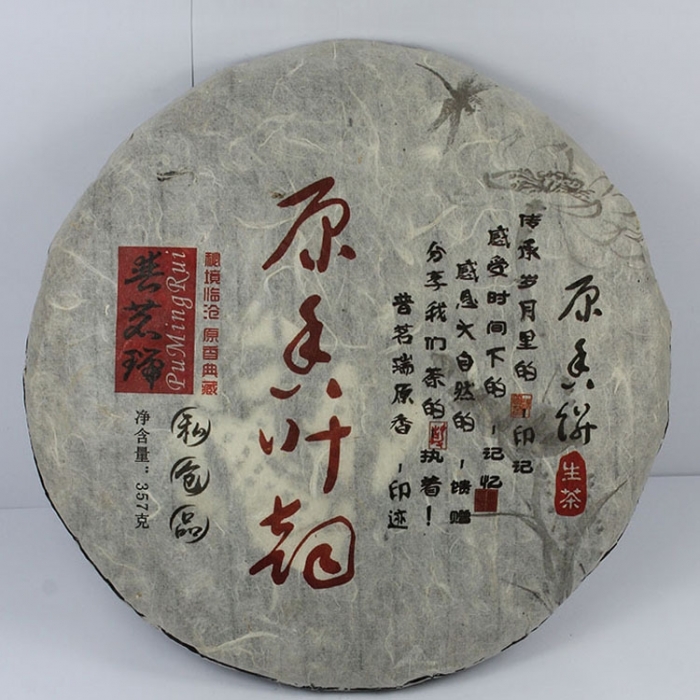 原香饼
生茶
传承岁月里的-印记
感受时间下的-记忆
感恩大自然的-馈赠
分享我们茶的执着!
普茗瑞原香-印迹
原香叶韵
秘境临沧 原香典藏
PuMingRui
普茗瑞
净含量：357克